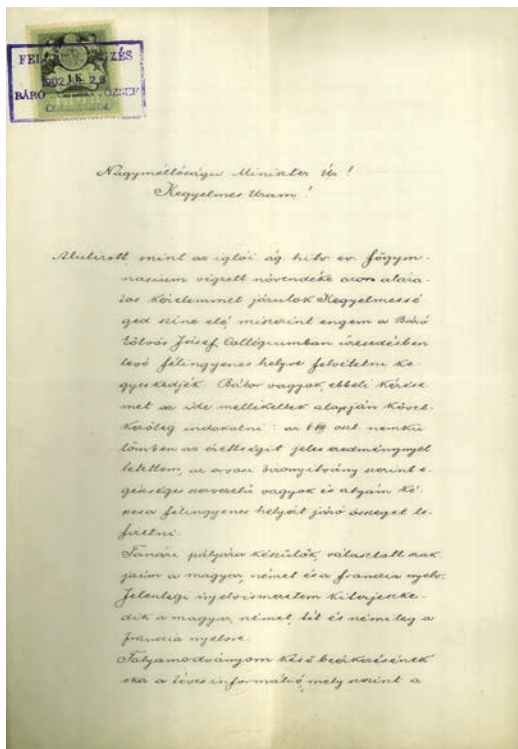 1 K
1902
BÁRÓ JÓZSEF
Nagyméltóságu Miniszter Úr!
Kegyelmes Uram!
Alulirott mint az iglói ág. hitv. ev. főgym-
nasium végzett növendéke azon aláza-
tos kérelemmel járulok Kegyelmessé
ged szine elé, miszerint engem a Báró
Eötvös József Collégiumban üresedésben
levő félingyenes helyre felvétetni ke-
gyeskedjék. Bátor vagyok ebbeli kérése-
met az ide mellékeltek alapján követ-
kezőleg indokolni: az I-VIII oszt. nemkü
lömben az érettségit jeles eredménynyel
letettem, az orvosi bizonyitvány szerint e-
gészséges szervezetü vagyok és atyám ké-
pes a félingyenes helyért járó összeget le-
fizetni.
Tanári pályára készülök, választott szak
jaim a magyar, német és a francia nyelv.
Jelenlegi nyelvismeretem kiterjeszke-
dik a magyar, német, tót és némileg a
francia nyelvre.
Folyamodványom késő beérkezésének
oka a téves információ, mely szerint a